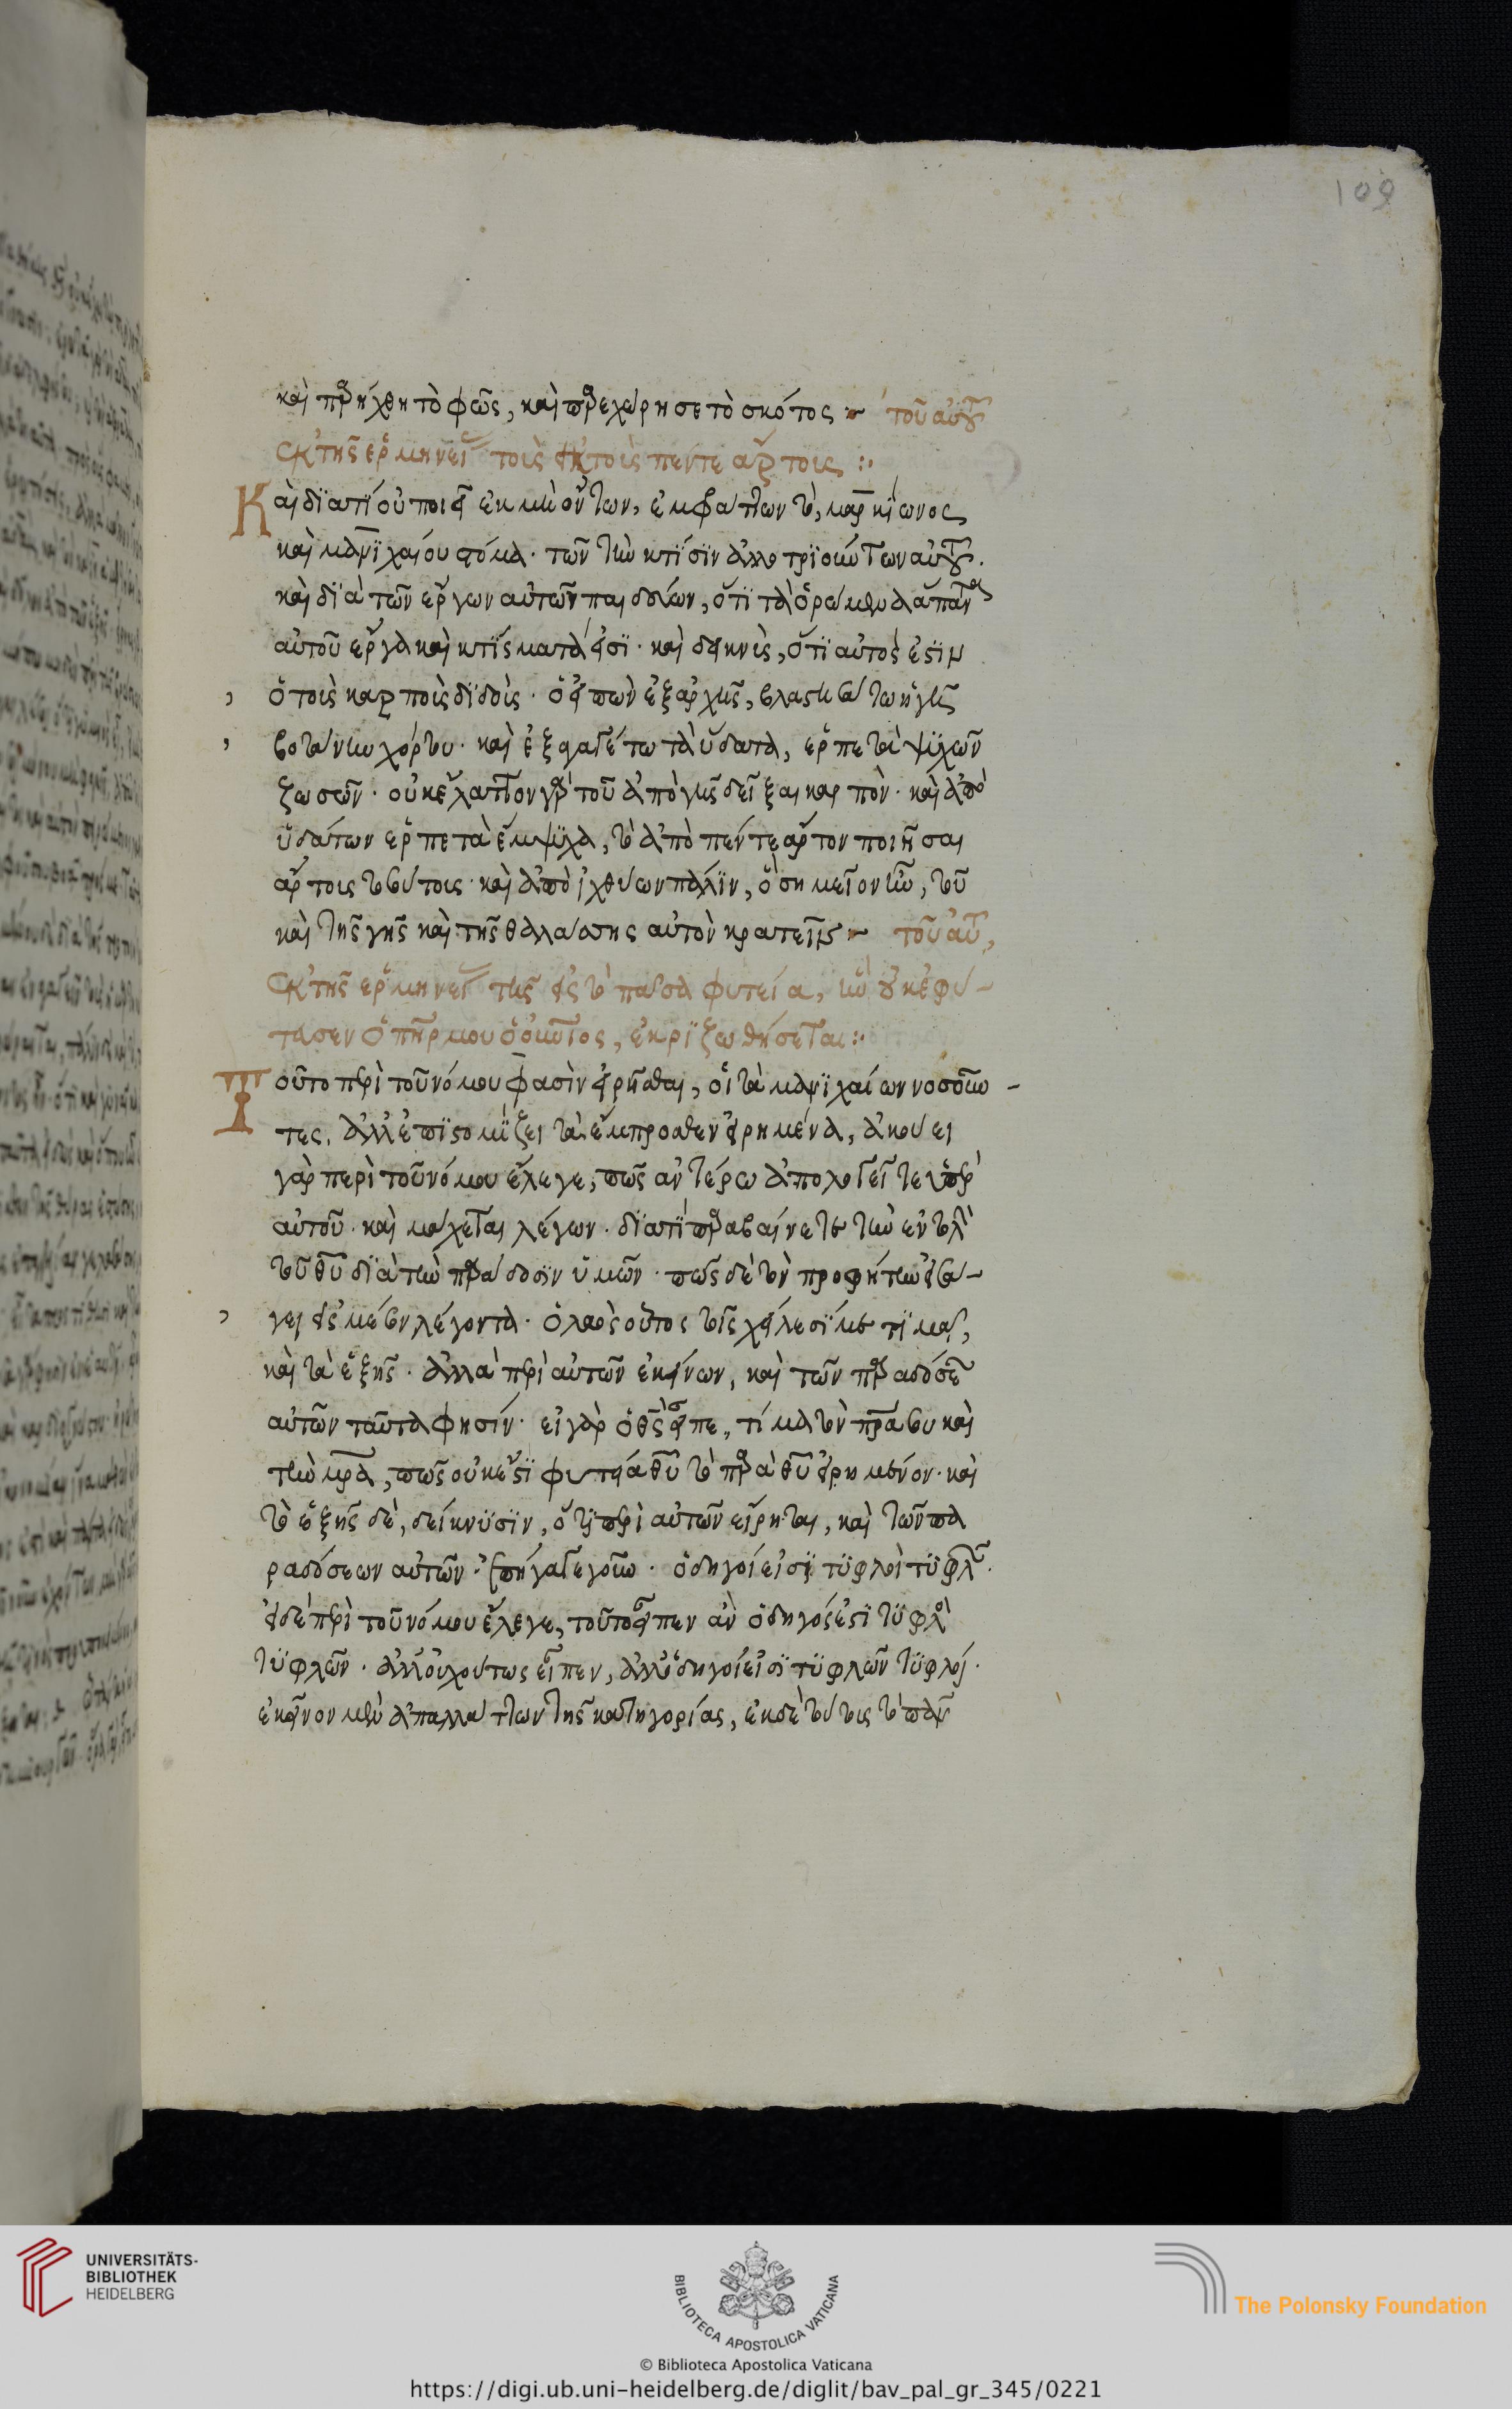 109
καὶ παρήχθη τὸ φῶς, καὶ παρεχώρησε τὸ σκότος τοῦ αὐτοῦ
ἐκ τῆς ἑρμηνείας τοῖς πέντε ἄρτοις :·
Καὶ διατί οὐ ποιεῖ ἐκ μὴ ὄντων, ἐμφράττων τὸ, μαρκίωνος
καὶ μανιχαίου στόμα· τῶν τὴν κτίσιν ἀλλοτριούντων αὐτοῦ.
καὶ διὰ τῶν ἔργων αὐτῶν παιδεύων, ὅτι τὰ ὁρώμενα ἅπαντα
αὐτοῦ ἔργα καὶ κτίσματά εἰσι· καὶ δεικνὺς, ὅτι αὐτός ἐστιν
ὁ τοὺς καρποὺς διδοὺς· ὁ εἰπὼν ἐξαρχῆς, βλαστησάτω ἡ γῆ
βοτάνην χόρτου· καὶ ἐξαγαγέτω τὰ ὕδατα, ἑρπετὰ ψυχῶν
ζωσῶν· οὐκ ἔλαττον γὰρ τοῦ ἀπὸ γῆς δεῖξαι καρπὸν· καὶ ἀπὸ
ὑδάτων ἑρπετὰ ἔμψυχα, τὸ ἀπὸ πέντε ἄρτον ποιῆσαι
ἄρτους τοσούτους· καὶ ἀπὸ ἰχθύων πάλιν, ὃ σημεῖον ἦν, τοῦ
καὶ τῆς γῆς καὶ τῆς θαλάσσης αὐτὸν κρατεῖν τοῦ αὐτ,
ἐκ τῆς ἑρμηνείας τῆς εἰς τὸ πᾶσα φυτεία, ἣν οὐκ ἐφύ-
τευσεν ὁ πηρ μου ὁ οὐνιος, ἐκριζωθήσεται :·
Τοῦτο περὶ τοῦ νόμου φασὶν εἰρῆσθαι, οἱ τὰ μανιχαίων νοσοῦν-
τες. ἀλλ' ἐπιστομίζει τὰ ἔμπροσθεν εἰρημένα,
γὰρ περὶ τοῦ νόμου ἔλεγε, πῶς ἀνωτέρω ἀπολογεῖται ὑπὲρ
αὐτοῦ· καὶ μάχεται λέγων· διατί παραβαίνετε τὴν ἐντολὴν
τοῦ θυ διὰ τὴν παράδοσιν ὑμῶν· πῶς δὲ τὸν προφήτην εἰσά-
γει εἰς μέσον λέγοντα· ὁ λαὸς οὗτος τοῖς χείλεσί με τιμᾶ,
καὶ τὰ ἑξῆς· ἀλλὰ περὶ αὐτῶν ἐκείνων, καὶ τῶν παραδόσεων
αὐτῶν ταῦτα φησίν· εἰ γὰρ ὁ θς εἶπε, τίμα τὸν πρα σου καὶ
τὴν μρα, πῶς οὐκ ἔστι φυτεία θυ τὸ παρὰ θυ εἰρημένον· καὶ
τὸ ἑξῆς δὲ, δείκνυσιν, ὅτι περὶ αὐτῶν εἴρηται, καὶ τῶν πα
ραδόσεων αὐτῶν· ἐπήγαγε γοῦν· ὁδηγοί εἰσι τυφλοὶ τυφλῶν.
εἰ δὲ περὶ τοῦ νόμου ἔλεγε, τοῦτο εἶπεν ἂν ὁδηγός ἐστι τυφλὸς
τυφλῶν· ἀλλ' οὐχ οὕτως εἶπεν, ἀλλ' ὁδηγοί εἰσι τυφλῶν τυφλοί.
ἐκεῖνον μὲν ἀπαλλάττων τῆς κατηγορίας, ἐκ δὲ τούτοις τὸ πᾶν
UNIVERSITÄTS-
BIBLIOTHEK
HEIDELBERG
BIBLIOTECA APOSTOLICA VATICANA
The Polonsky Foundation
© Biblioteca Apostolica Vaticana
https://digi.ub.uni-heidelberg.de/diglit/bav_pal_gr_345/0221